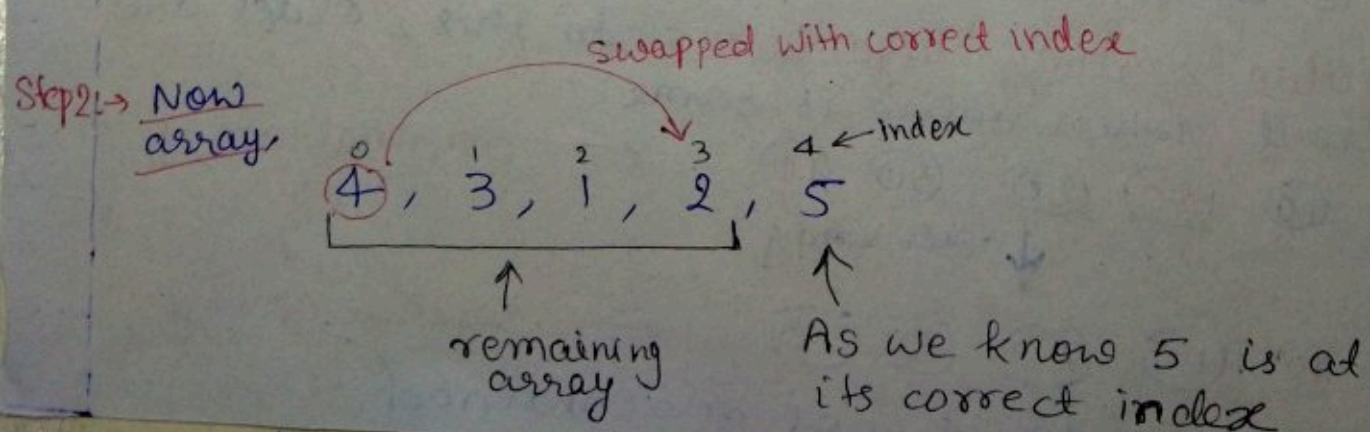 swapped with correct index
Step2:→ Now
array,
0 1 2 3 4 ← index
4, 3, 1, 2, 5
remaining
array
As we know 5 is at
its correct index